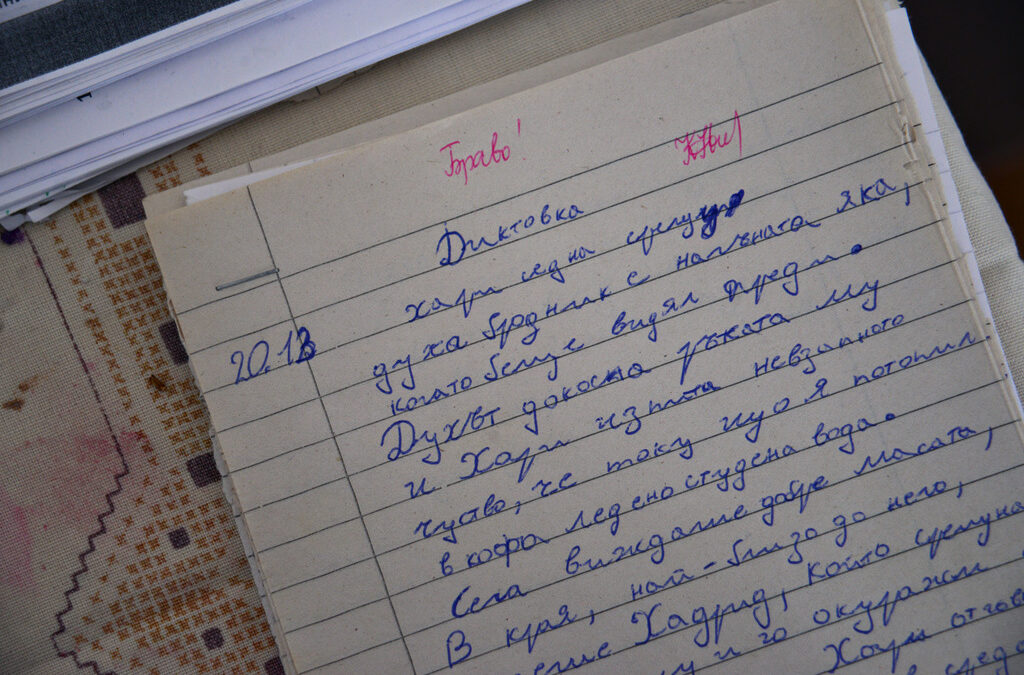 Браво!
Диктовка
20.12
Хари седна срещу
духа бродник с надлъната яка,
когато беше видял преди.
Духът докосна ръката му
и Хари изпита невзапното
чуство, че току що я потопил
в кофа ледено студена вода.
Сега виждаше добре масата,
В края, най-близо до него,
Хадрид, който срещуна
и го окуражи
Хари отгов